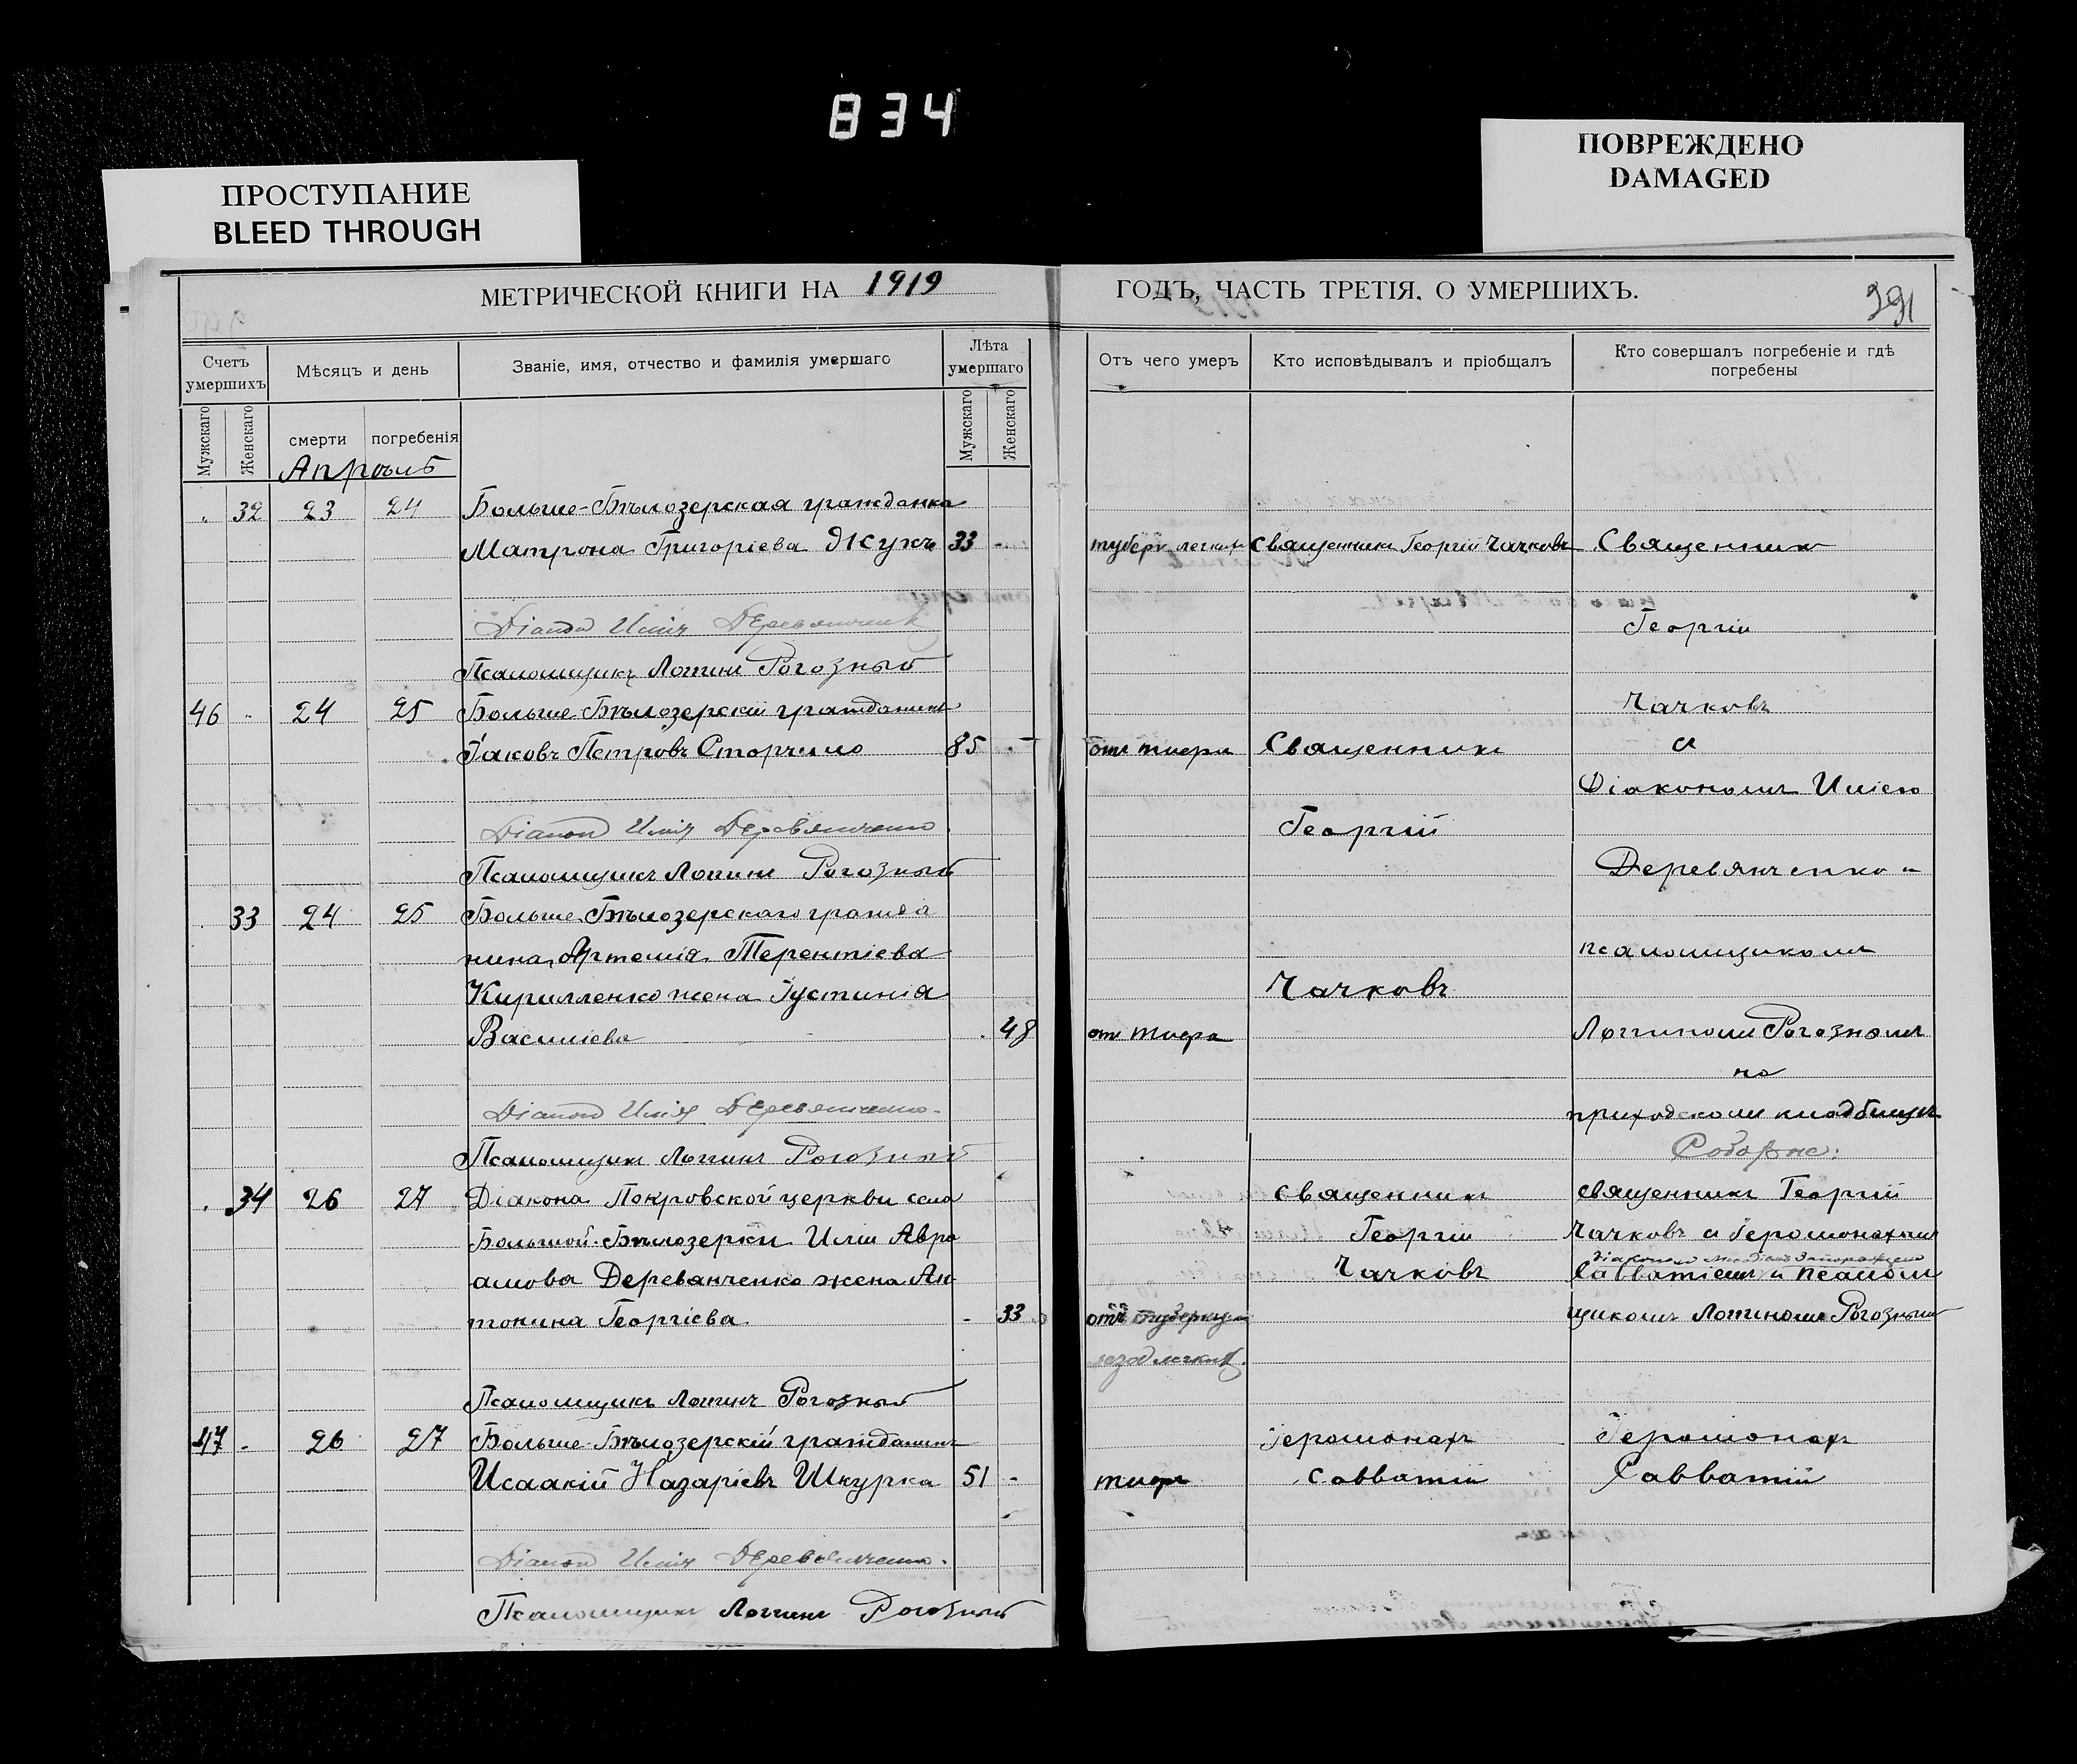 834
ПРОСТУПАНИЕ
BLEED THROUGH
ПОВРЕЖДЕНО
DAMAGED
МЕТРИЧЕСКОЙ КНИГИ НА 1919
ГОДЪ, ЧАСТЬ ТРЕТІЯ. О УМЕРШИХЪ.
391
Счетъ умершихъ
Мѣсяцъ и день
Званіе, имя, отчество и фамилія умершаго
Лѣта умершаго
Отъ чего умеръ
Кто исповѣдывалъ и пріобщалъ
Кто совершалъ погребеніе и гдѣ
погребены
Мужскаго
Женскаго
смерти
погребенія
Мужскаго
Женскаго
Апрѣль
32 23 24 Больше-Бѣлозерская гражданка
Матрона Григоріева Жукъ 33 -
Діакон Илія Деревянченко
Псаломщикъ Логинъ Рогозный
46 - 24 25 Больше-Бѣлозерскій гражданинъ
Іаковъ Петровъ Сторчило 85 -
Діакон Илія Деревянченко
Псаломщикъ Логинъ Рогозный
33 24 25 Больше-Бѣлозерскаго гражда
нина Артемія Терентіева
Кирилленко жена Іустинія
Василіева 48
Діакон Илія Деревянченко
Псаломщикъ Логинъ Рогозный
34 26 27 Діакона Покровской церкви села
Большой-Бѣлозерки Иліи Авра
амова Деревянченко жена Ан
тонина Георгіева - 33
Псаломщикъ Логинъ Рогозный
47 - 26 27 Больше-Бѣлозерскій гражданинъ
Исаакій Назаріевъ Шкурка 51 -
Діакон Илія Деревянченко.
Псаломщикъ Логинъ Рогозный
туберк легкихъ
отъ тифа
отъ тифа
отъ туберкуле
леза легкихъ.
тифъ
Священникъ Георгій Чачковъ
Священникъ
Георгій
Чачковъ
священникъ
Георгій
Чачковъ
Іеромонахъ
Савватій
Священник
Георгій
Чачковъ
съ
Діакономъ Иліею
Деревянченко и
псаломщикомъ
Логиномъ Рогознымъ
на
приходскомъ кладбищѣ
священникъ Георгій
Чачковъ съ Іеромонахомъ
Савватіемъ и псалом
щикомъ Логиномъ Рогознымъ
Іеромонахъ
Савватій